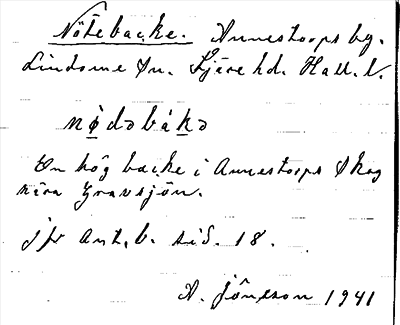 Nötebacke. Annestorps by.
Lindome Sn. Fjäre hd. Hall. l.
nø̀dəbákə
En hög backe i Annestorps skog
nära Gravsjön.
jfr Ant. b. sid. 18.
A. Jönsson 1941